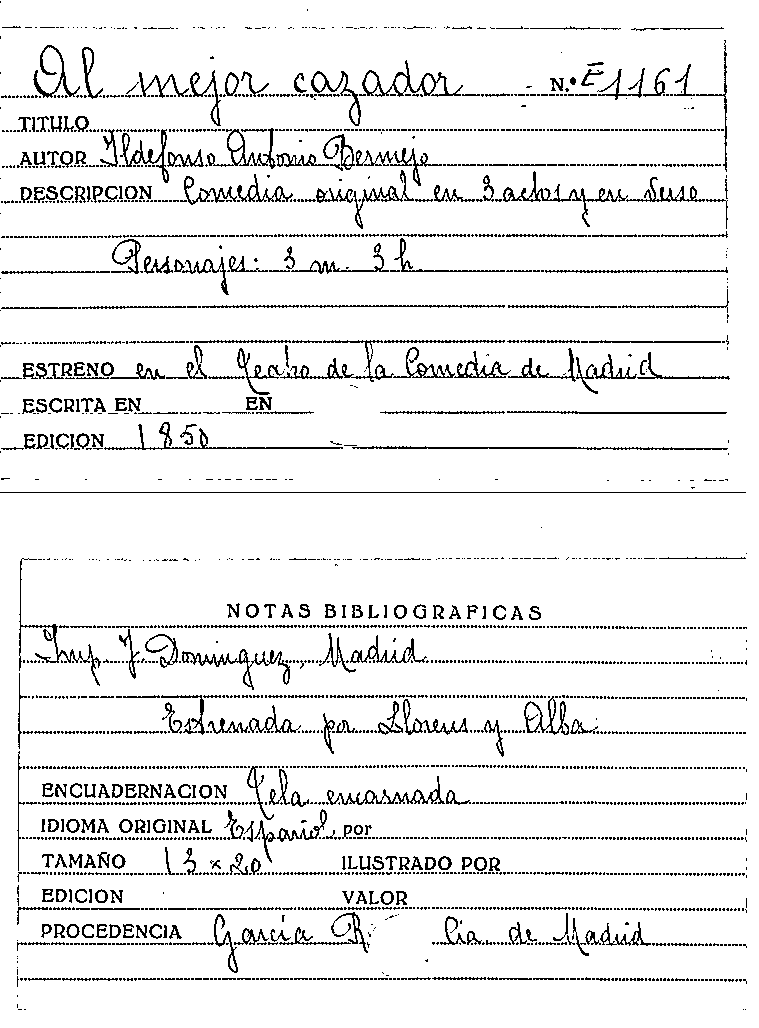 Al mejor cazador N.º E1161
TITULO
AUTOR Ildefonso Antonio Bermejo
DESCRIPCION Comedia original en 3 actos y en verso
Personajes: 3 m. 3 h.
ESTRENO en el Teatro de la Comedia de Madrid
ESCRITA EN EN
EDICION 1850
NOTAS BIBLIOGRAFICAS
Imp. J. Dominguez, Madrid
Estrenada por Llorens y Alba.
ENCUADERNACION Tela encarnada
IDIOMA ORIGINAL Español por
TAMAÑO 13 x 20 ILUSTRADO POR
EDICION VALOR
PROCEDENCIA García R. Cia. de Madrid